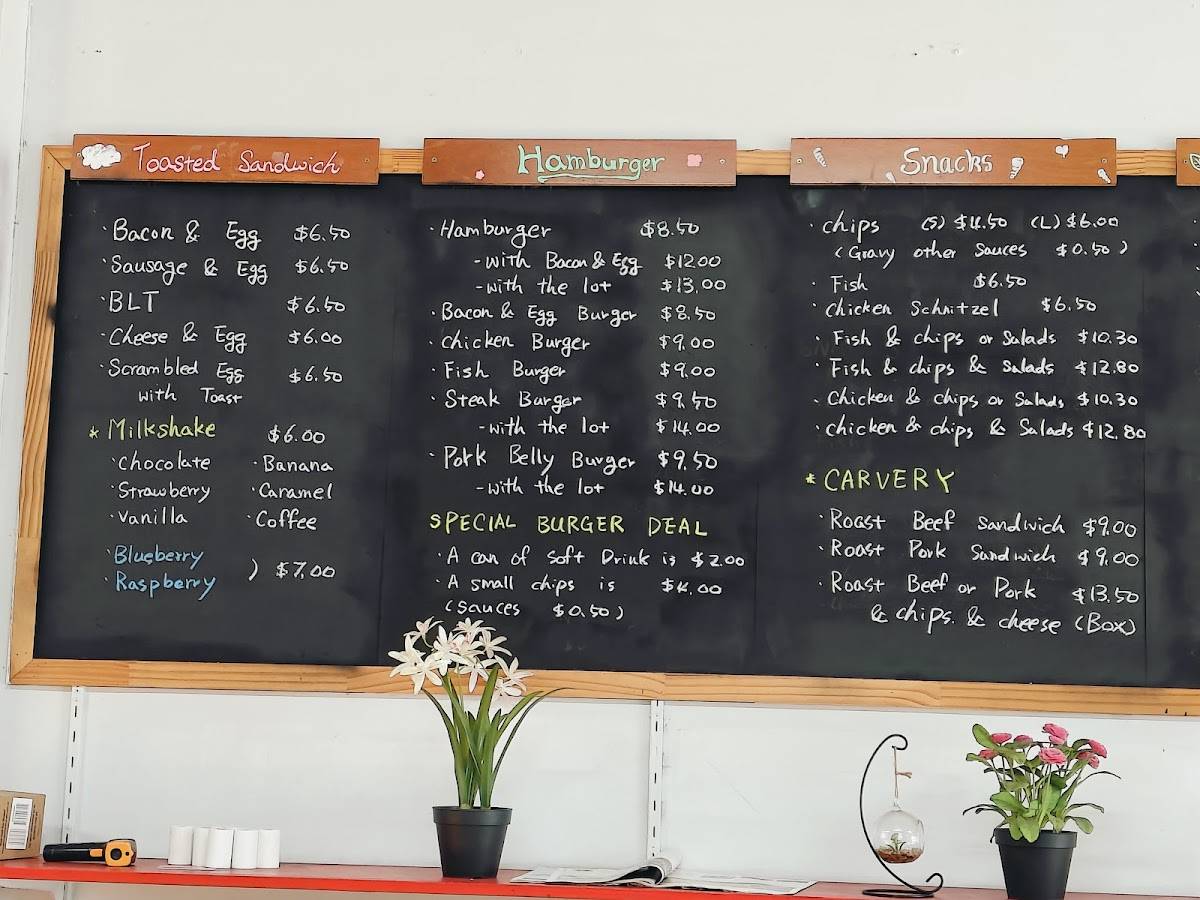 Toasted Sandwich
· Bacon & Egg $6.50
· Sausage & Egg $6.50
· BLT $6.50
· Cheese & Egg $6.00
· Scrambled Egg $6.50
with Toast
* Milkshake $6.00
· Chocolate · Banana
· Strawberry · Caramel
· Vanilla · Coffee
· Blueberry
· Raspberry ) $7.00
Hamburger
· Hamburger $8.50
- with Bacon & Egg $12.00
- with the lot $13.00
· Bacon & Egg Burger $8.50
· Chicken Burger $9.00
· Fish Burger $9.00
· Steak Burger $9.50
- with the lot $14.00
· Pork Belly Burger $9.50
- with the lot $14.00
SPECIAL BURGER DEAL
· A can of Soft Drink is $2.00
· A small chips is $4.00
(Sauces $0.50)
Snacks
· chips (S) $4.50 (L) $6.00
(Gravy other Sauces $0.50)
· Fish $6.50
· Chicken Schnitzel $6.50
· Fish & chips or Salads $10.30
· Fish & chips & Salads $12.80
· Chicken & chips or Salads $10.30
· chicken & chips & Salads $12.80
* CARVERY
· Roast Beef Sandwich $9.00
· Roast Pork Sandwich $9.00
· Roast Beef or Pork $13.50
& chips. & cheese (Box)